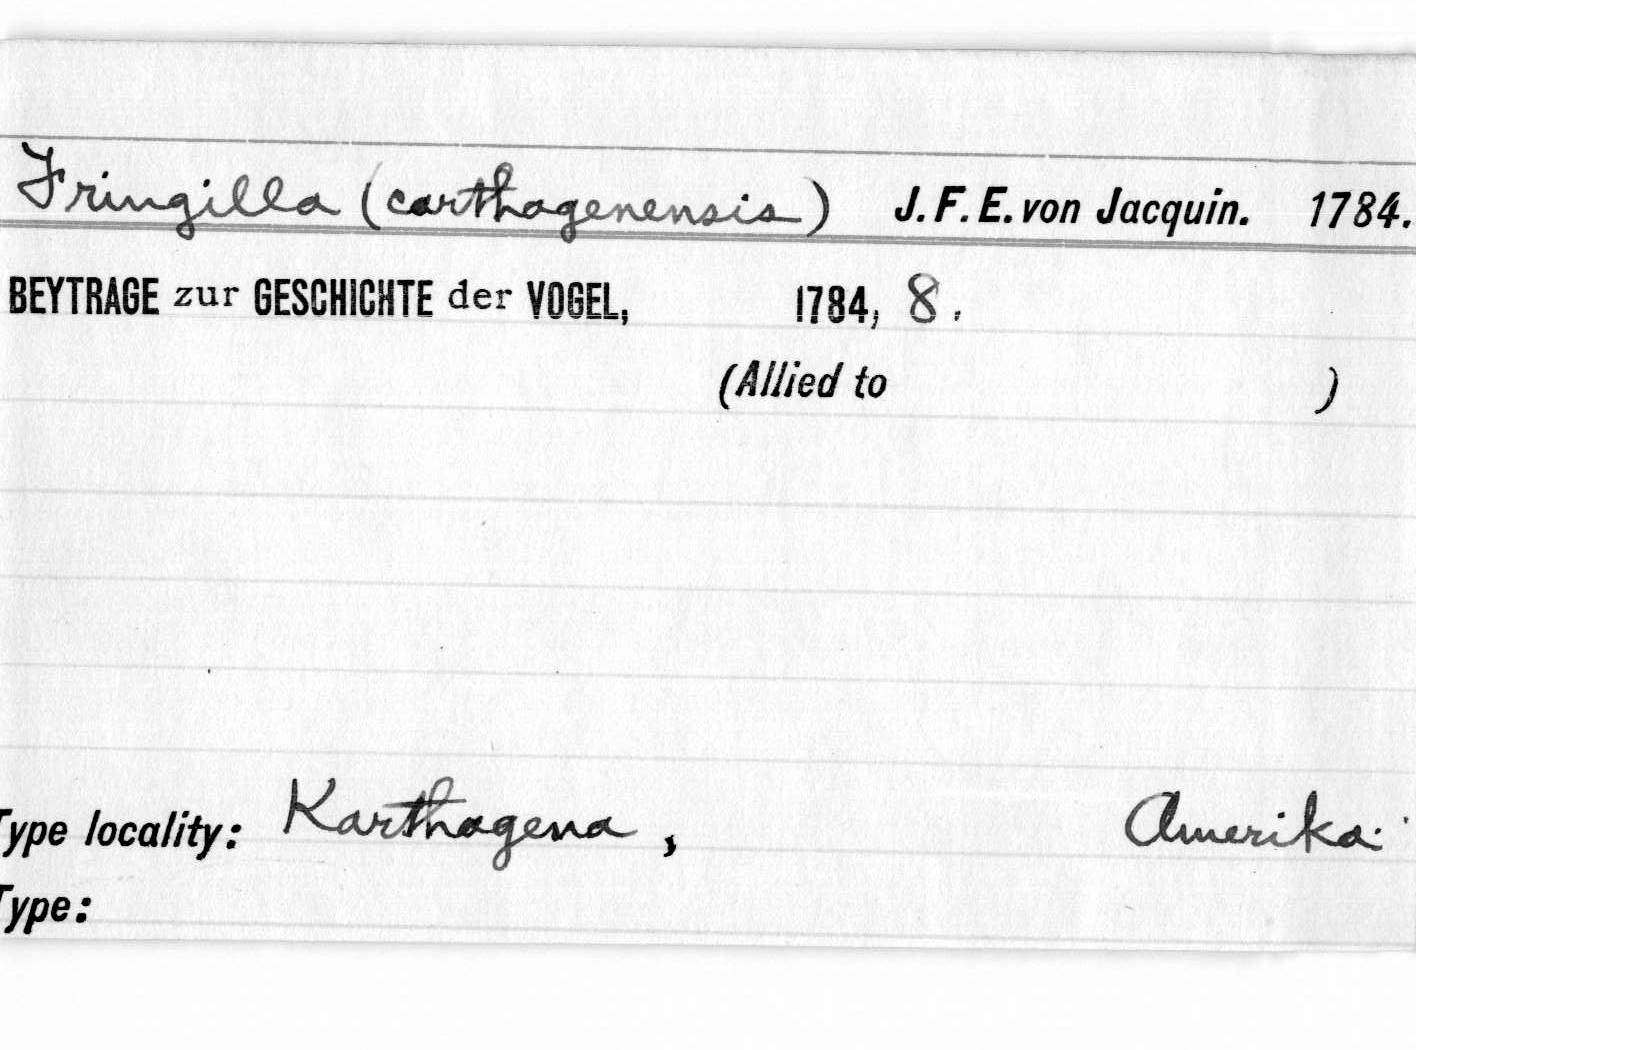 Fringilla (carthagenensis) J. F. E. von Jacquin. 1784.
BEYTRAGE zur GESCHICHTE der VOGEL, 1784, 8.
(Allied to )
Type locality: Karthagena, Amerika.
Type: